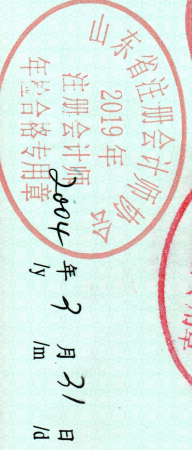 山东省注册会计师协会
2019年
注册会计师
年检合格专用章
2004年3月31日
/y /m /d